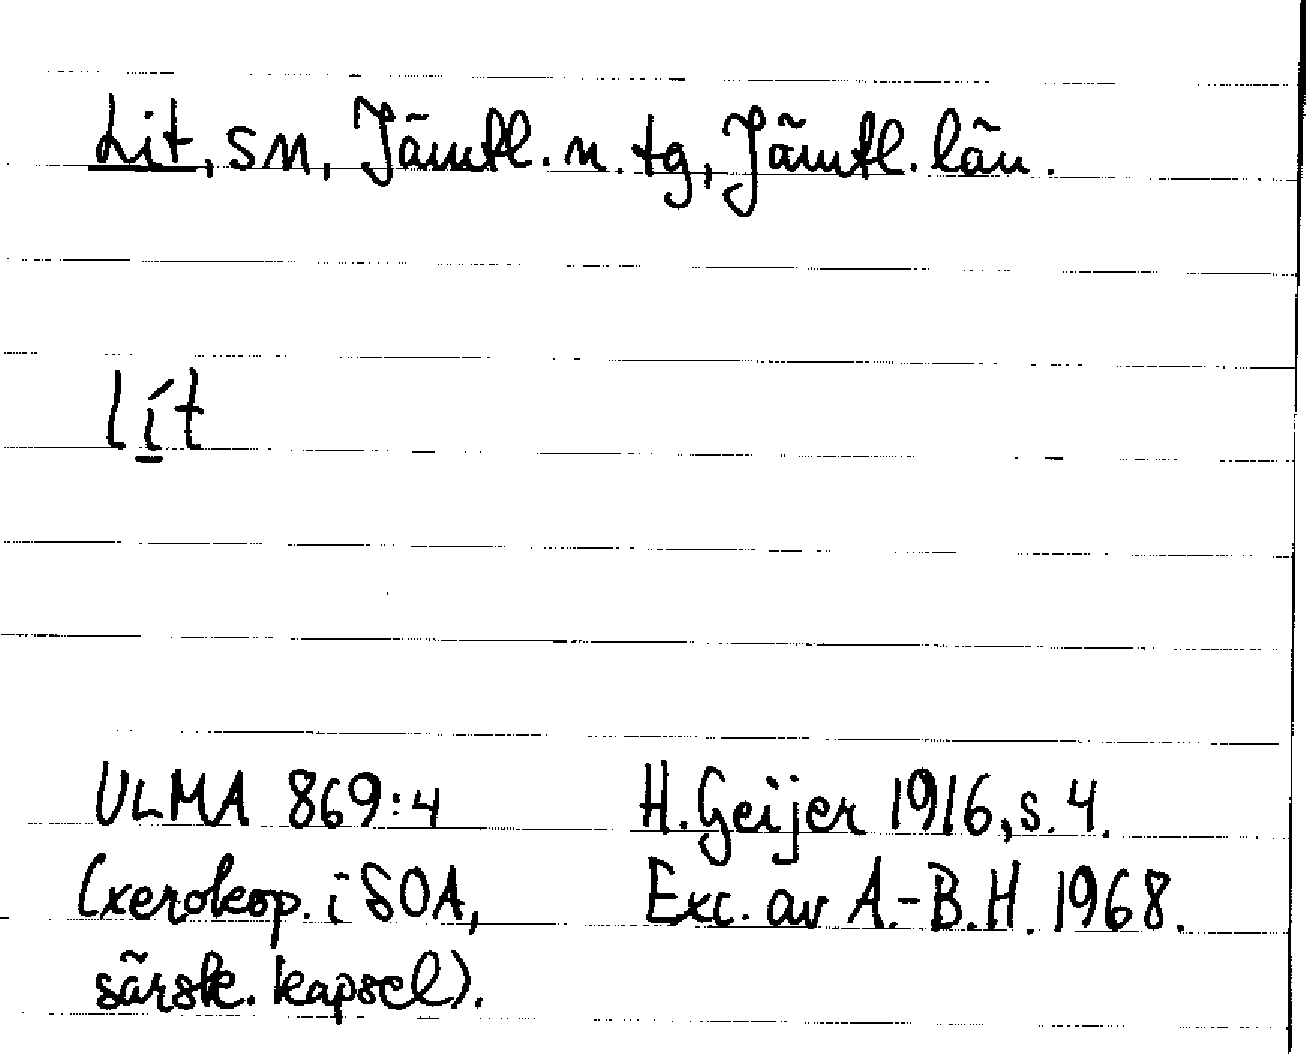 Lit, sn, Jämtl. n. tg, Jämtl. län.
lít
ULMA 869:4
(xerokop. i SOA,
särsk. kapsel).
H. Geijer 1916, s. 4.
Exc. av A.-B.H. 1968.